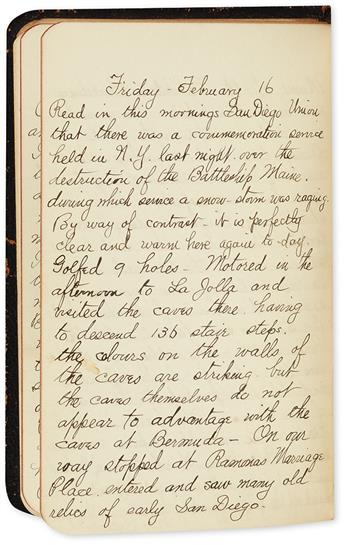 Friday - February 16
Read in this mornings San Diego Union
that there was a commemoration service
held in N.Y. last night over the
destruction of the Battleship Maine.
during which service a snow-storm was raging.
By way of contrast - it is perfectly
clear and warm here again to-day.
Golfed 9 holes - Motored in the
afternoon to La Jolla and
visited the caves there having
to descend 136 stair steps.
the colours on the walls of
the caves are striking but
the caves themselves do not
appear to advantage with the
caves at Bermuda - On our
way stopped at Ramonas Marriage
Place entered and saw many old
relics of early San Diego.